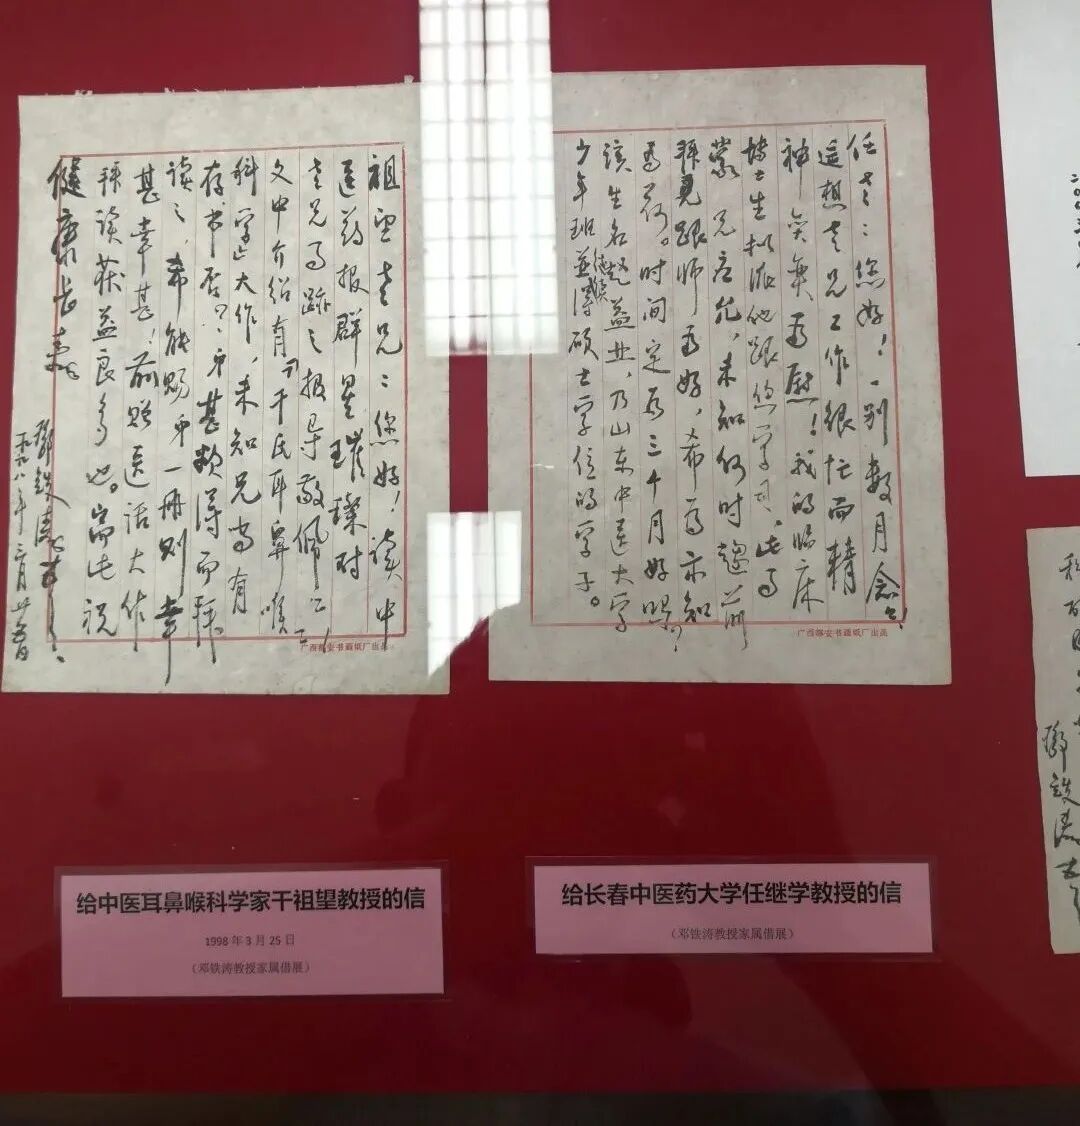 任老：您好！一别数月念念
遥想老兄工作很忙而精
神奕奕为慰！我的临床
博士生拟派他跟您学习，此事
蒙兄应允，未知何时趋前
拜见跟师为好，希为示知
为荷。时间定为三个月好吗？
该生名赵益业，乃山东中医大学
少年班并得硕士学位的学子。
广西都安书画纸厂出品
祖望老兄：您好！读中
医药报群星璀璨对
老兄事迹之报导敬佩之
文中介绍有《干氏耳鼻喉
科学》大作，未知兄尚有
存书否？弟甚欲得而拜
读之，希能赐弟一册则幸
甚幸甚！前赠医话大作
拜读获益良多也。耑此祝
健康长寿
邓铁涛
一九九八年三月廿五日
广西都安书画纸厂出品
邓铁涛
给中医耳鼻喉科学家干祖望教授的信
1998 年 3 月 25 日
（邓铁涛教授家属借展）
给长春中医药大学任继学教授的信
（邓铁涛教授家属借展）